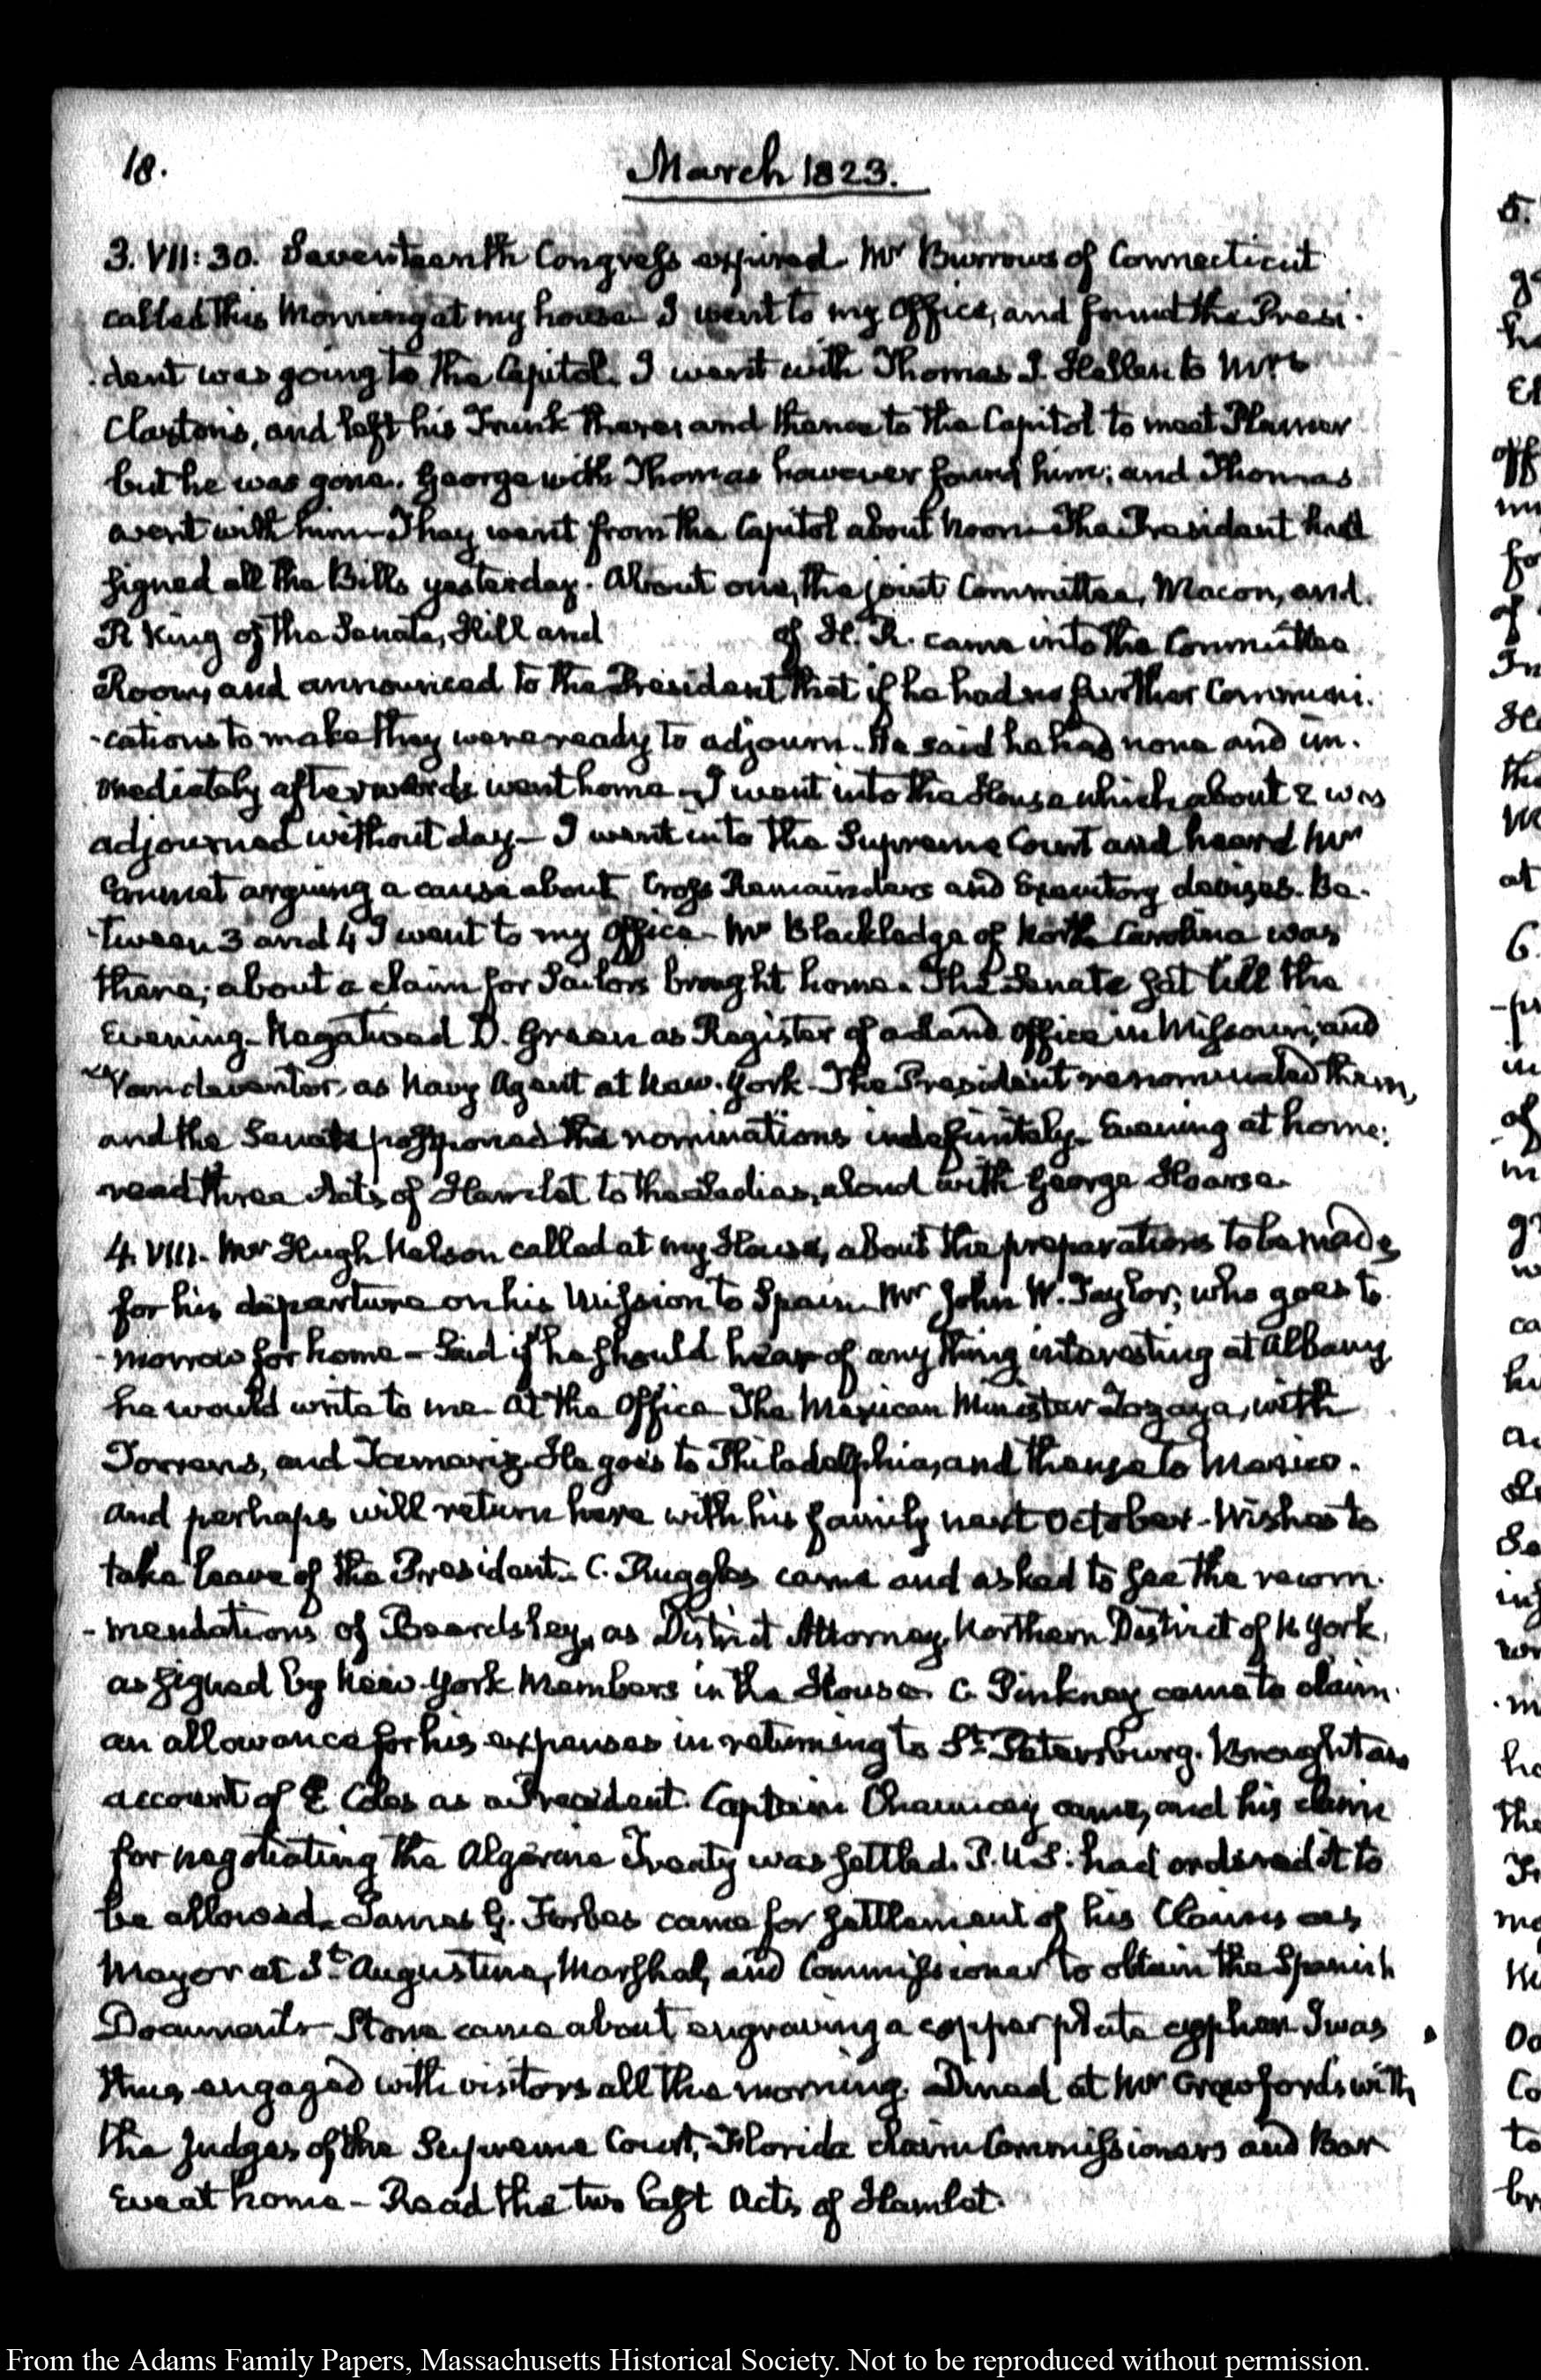 18.
March 1823.
3. VII: 30. Seventeenth Congress expired. Mr Burrows of Connecticut
called this Morning at my house. I went to my Office, and found the Presi-
-dent was going to the Capitol. I went with Thomas J. Hellen to Mrs
and left his Trunk there, and thence to the Capitol to meet Plumer
but he was gone. George with Thomas however found him; and Thomas
went with him - They went from the Capitol about Noon - The President had
signed all the Bills yesterday. About one, the joint Committee, Macon, and
R King of the Senate, Hill and of H. R. came into the Committee
Room, and announced to the President that if he had no further Communi-
-cations to make they were ready to adjourn. He said he had none and im-
mediately afterwards went home - I went into the House which about 2 was
adjourned without day - I went into the Supreme Court and heard Mr
Emmet arguing a cause about Cross Remainders and Executory devises. Be-
-tween 3 and 4 I went to my Office - Mr Blackledge of North Carolina was
there; about a claim for Sailors brought home. The Senate sat till the
Evening - Negatived D. Green as Register of a Land Office in Missouri, and
Vandeventer, as Navy Agent at New-York - The President renominated them,
and the Senate postponed the nominations indefinitely. Evening at home;
read three Acts of Hamlet to the Ladies, aloud with George Hoarse.
4. VIII. Mr Hugh Nelson called at my House, about the preparations to be made
for his departure on his Mission to Spain. Mr John W. Taylor, who goes to-
-morrow for home - Said if he should hear of any thing interesting at Albany
he would write to me - At the Office - The Mexican Minister Zozaya, with
Torrens, and Tamariz. He goes to Philadelphia, and thence to Mexico.
And perhaps will return here with his family next October - Wishes to
take leave of the President. C. Ruggles came and asked to see the recom-
-mendations of Beardsley, as District Attorney, Northern District of N York,
as signed by New-York Members in the House. C. Pinkney came to claim
an allowance for his expenses in returning to St Petersburg. Brought an
account of E Coles as a Precedent. Captain Chauncey came, and his claim
for negotiating the Algerine Treaty was settled. P. U.S. had ordered it to
be allowed. James G. Forbes came for settlement of his Claims as
Mayor at St Augustine, Marshal, and Commissioner to obtain the Spanish
Documents - Stone came about engraving a copper plate cypher. I was
thus engaged with visitors all the morning. Dined at Mr Crawford's with
the Judges of the Supreme Court, Florida claim Commissioners and Bar
Eve at home - Read the two last Acts of Hamlet.
From the Adams Family Papers, Massachusetts Historical Society. Not to be reproduced without permission.